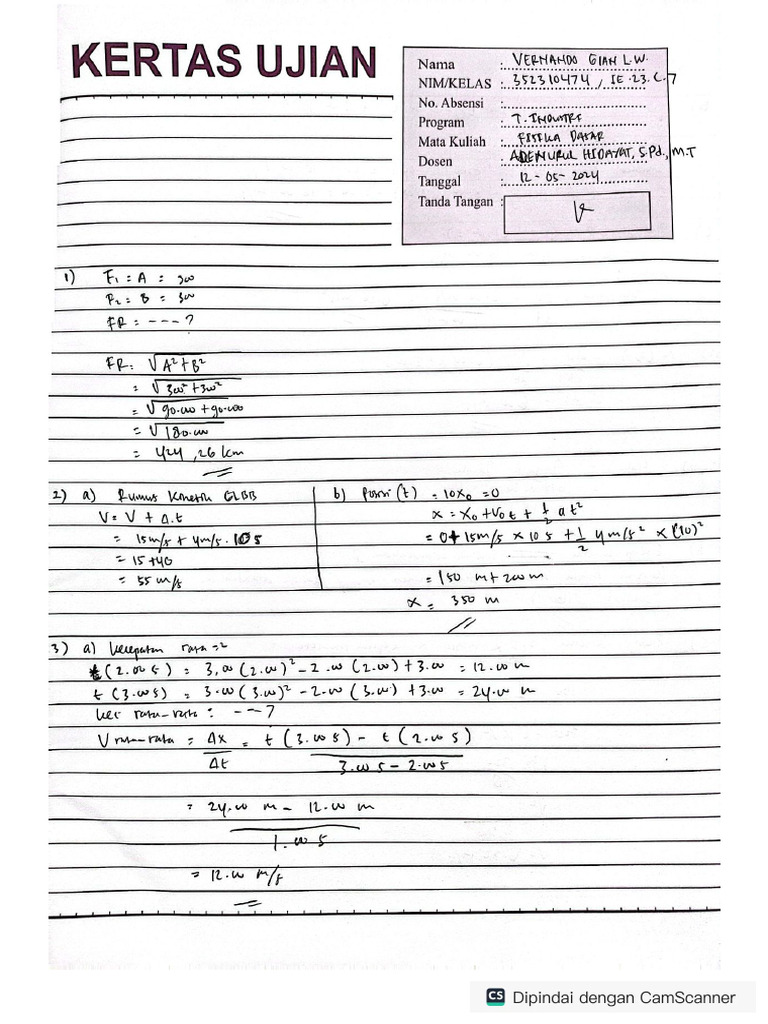 KERTAS UJIAN
Nama : VERNANDO GIAN L.W.
NIM/KELAS : 352310474, IE.23.C.7
No. Absensi :
Program : T. INDUSTRI
Mata Kuliah : FISIKA DASAR
Dosen : ADE NURUL HIDAYAT, S.Pd., M.T
Tanggal : 12-05-2024
Tanda Tangan :
1) F1 = A = 300
F2 = B = 300
FR = ---?
FR = √A²+B²
= √300²+300²
= √90.000+90.000
= √180.000
= 424,26 km
2) a) Rumus Kinetik GLBB
V = V + a.t
= 15m/s + 4m/s . 10 s
= 15+40
= 55 m/s
b) Posisi (t) = 10x₀ = 0
x = x₀ + v₀t + ½ at²
= 0 + 15m/s × 10 s + ½ 4m/s² × (10)²
= 150 m + 200 m
x = 350 m
3) a) kecepatan rata=2
t (2.00 s) = 3,00 (2.00)² - 2.00 (2.00) + 3.00 = 12.00 m
t (3.00 s) = 3.00 (3.00)² - 2.00 (3.00) + 3.00 = 24.00 m
kec rata-rata = ---?
V rata-rata = Δx/Δt = t (3.00 s) - t (2.00 s) / 3.00 s - 2.00 s
= 24.00 m - 12.00 m / 1.00 s
= 12.00 m/s
CS Dipindai dengan CamScanner